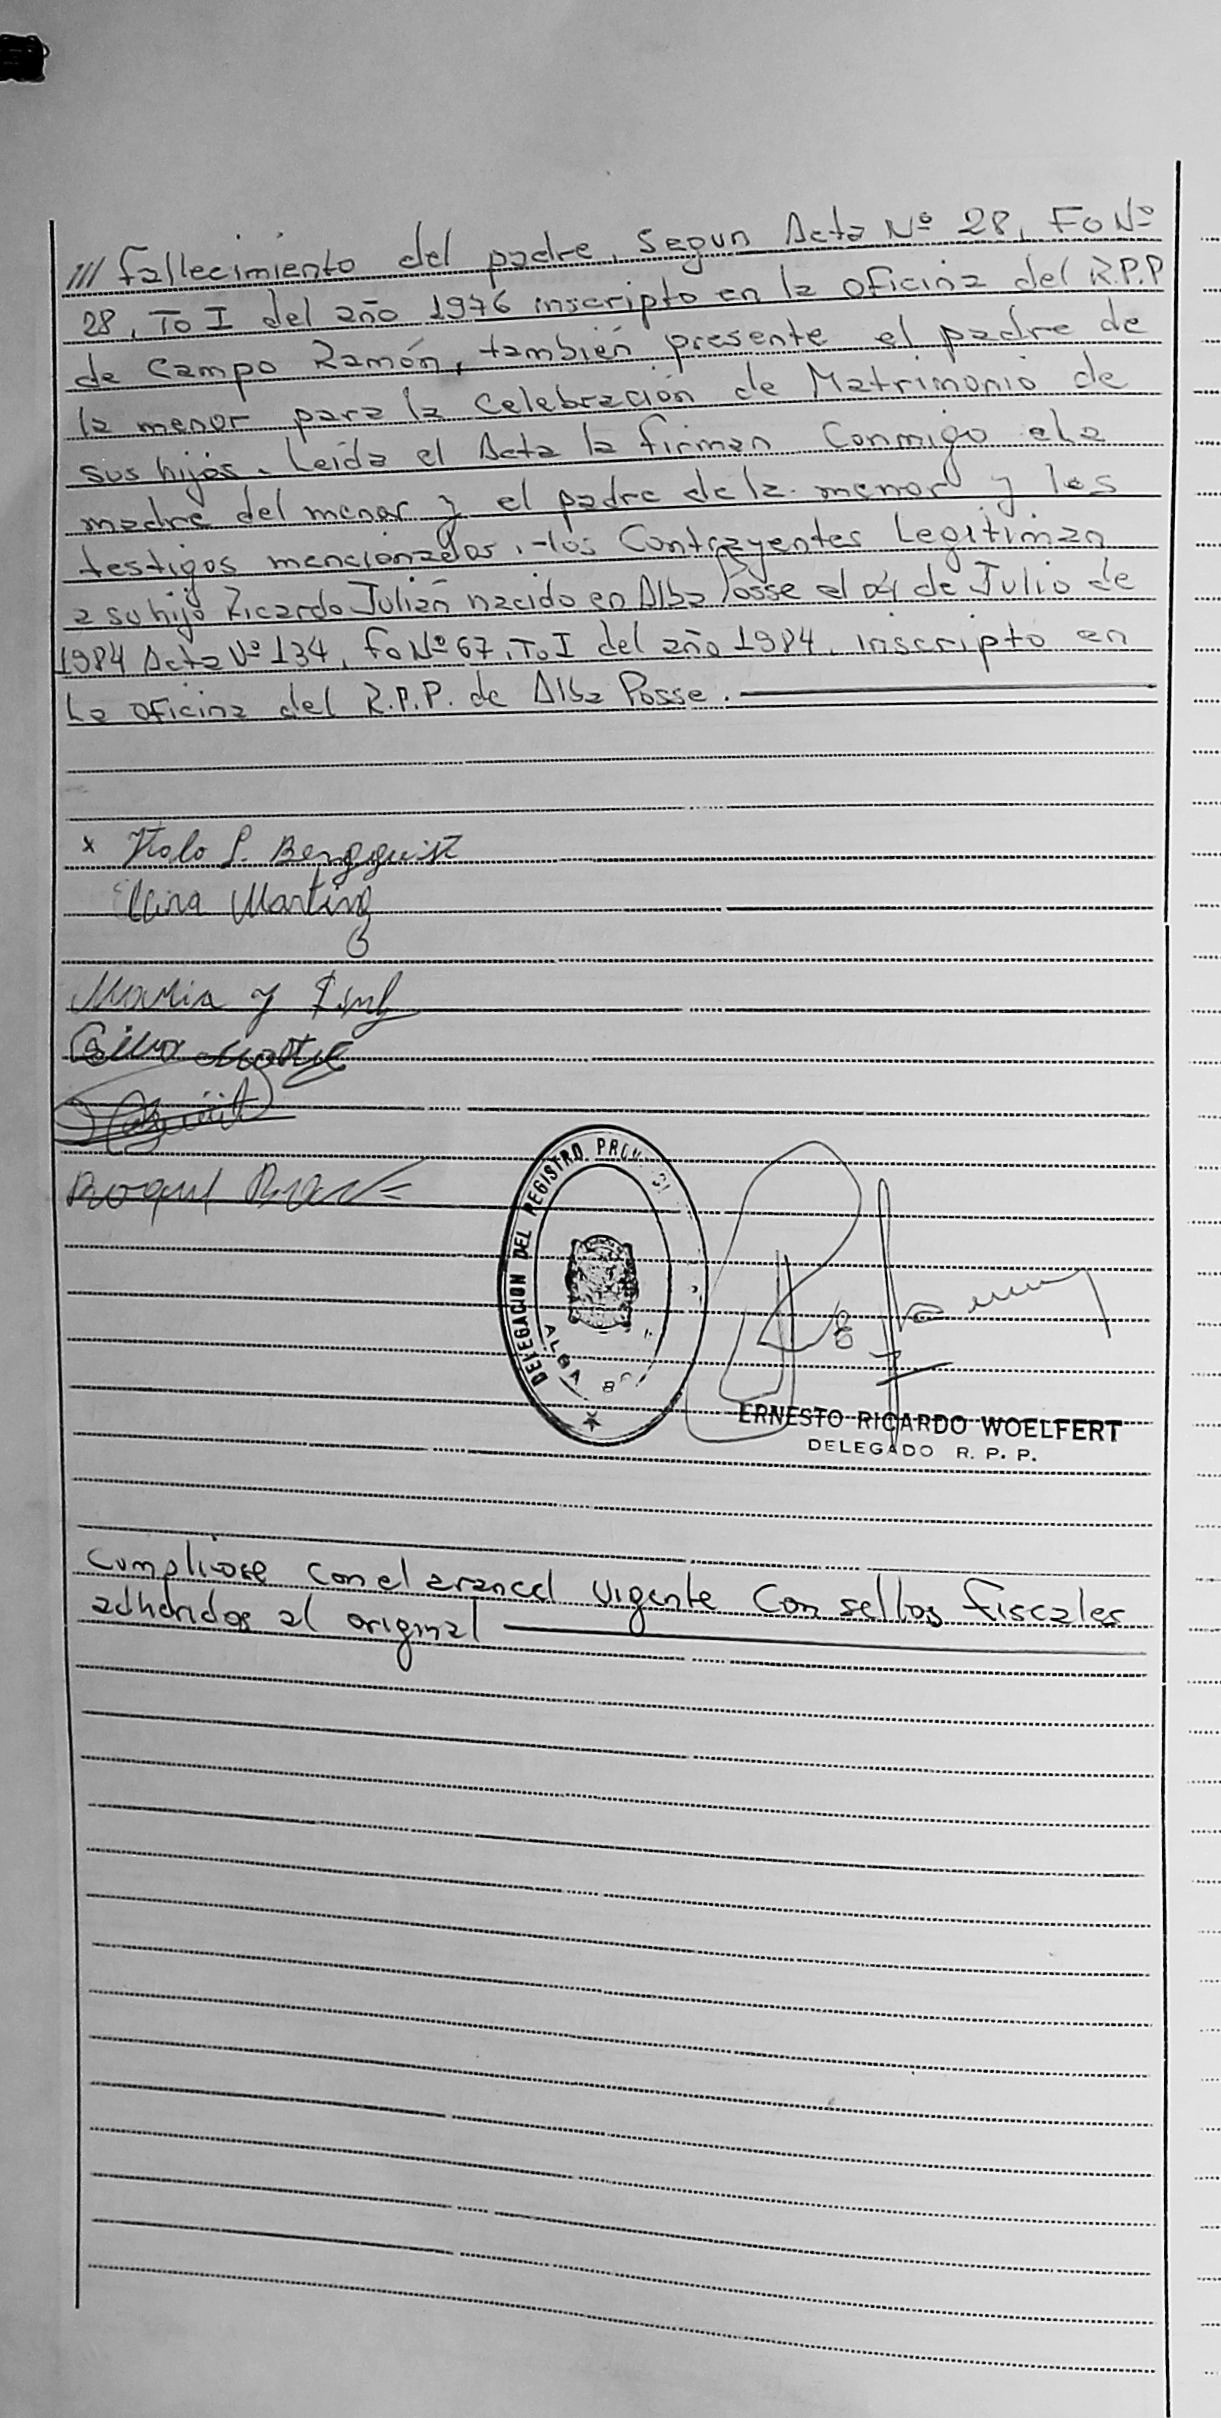 /// fallecimiento del padre, segun Acta Nº 28, Fo Nº
28, To I del año 1976 inscripto en la oficina del R.P.P
de Campo Ramón, también presente el padre de
la menor para la Celebración de Matrimonio de
sus hijos. Leida el Acta la firman Conmigo ela
madre del menor y el padre de la menor y los
testigos mencionados.-los Contrayentes Legitiman
a su hijo Ricardo Julián nacido en Alba Posse el 04 de Julio de
1984 Acta Nº 134, fo Nº 67, To I del año 1984. inscripto en
La oficina del R.P.P. de Alba Posse.
x Italo S. Bengguist
Martinz
Maria y
DELEGACION DEL REGISTRO
ALBA
ERNESTO RICARDO WOELFERT
DELEGADO R. P. P.
Cumpliose con el arancel vigente Con sellos fiscales
adheridos al original